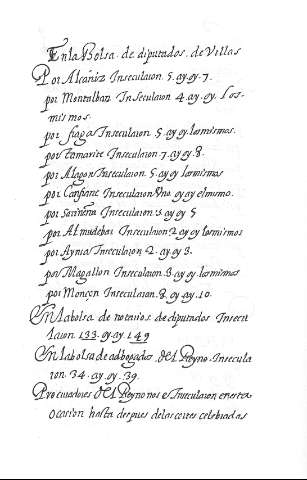 En la Bolsa de diputados de Villas
Por Alcañiz Insecularon 5. ay oy. 7.
por Montalban Insecularon 4. ay. oy. Los-
mismos.
por fraga Inseculaion 5. ay oy losmismos.
por tamarite Insecularon 7. ay oy. 8.
por Alagon Insecularon. 5. ay oy losmismos
por Canfranc Inseculaion Vno oy ay elmismo.
por Sariñena Inseculaion. 3 ay oy 5
por Almudebar Inseculaion 2 oy ay losmismos
por Aynsa Inseculaion 2. ay oy 3.
por Magallon Inseculaion. 3. ay oy losmismos
por Monçon Inseculaion. 8. oy ay. 10.
En la bolsa de notarios de diputados Insecu
laron 133. oy. ay. 149
En la bolsa de adbogados del Reyno. Insecula
ron 34. ay. oy. 39.
Procuradores del Reyno no se Inseculaion en esta
ocasion hasta despues de las cortes celebradas